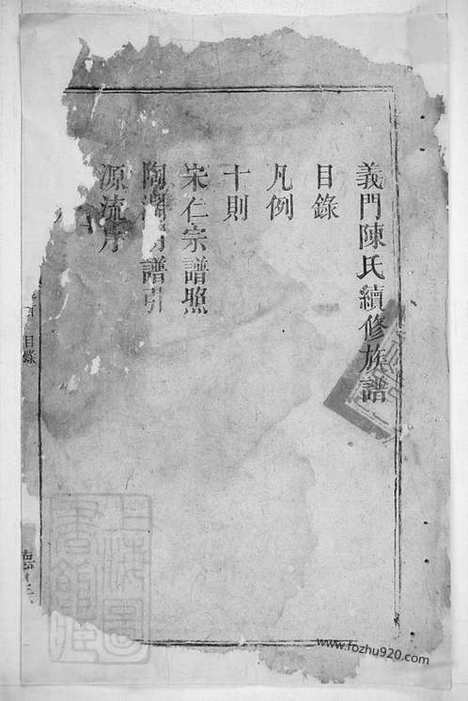 義門陳氏續修族譜
目錄
凡例
十則
宋仁宗譜照
陶淵明譜引
源流序
目錄
上海圖書館藏
www.fozhu920.com